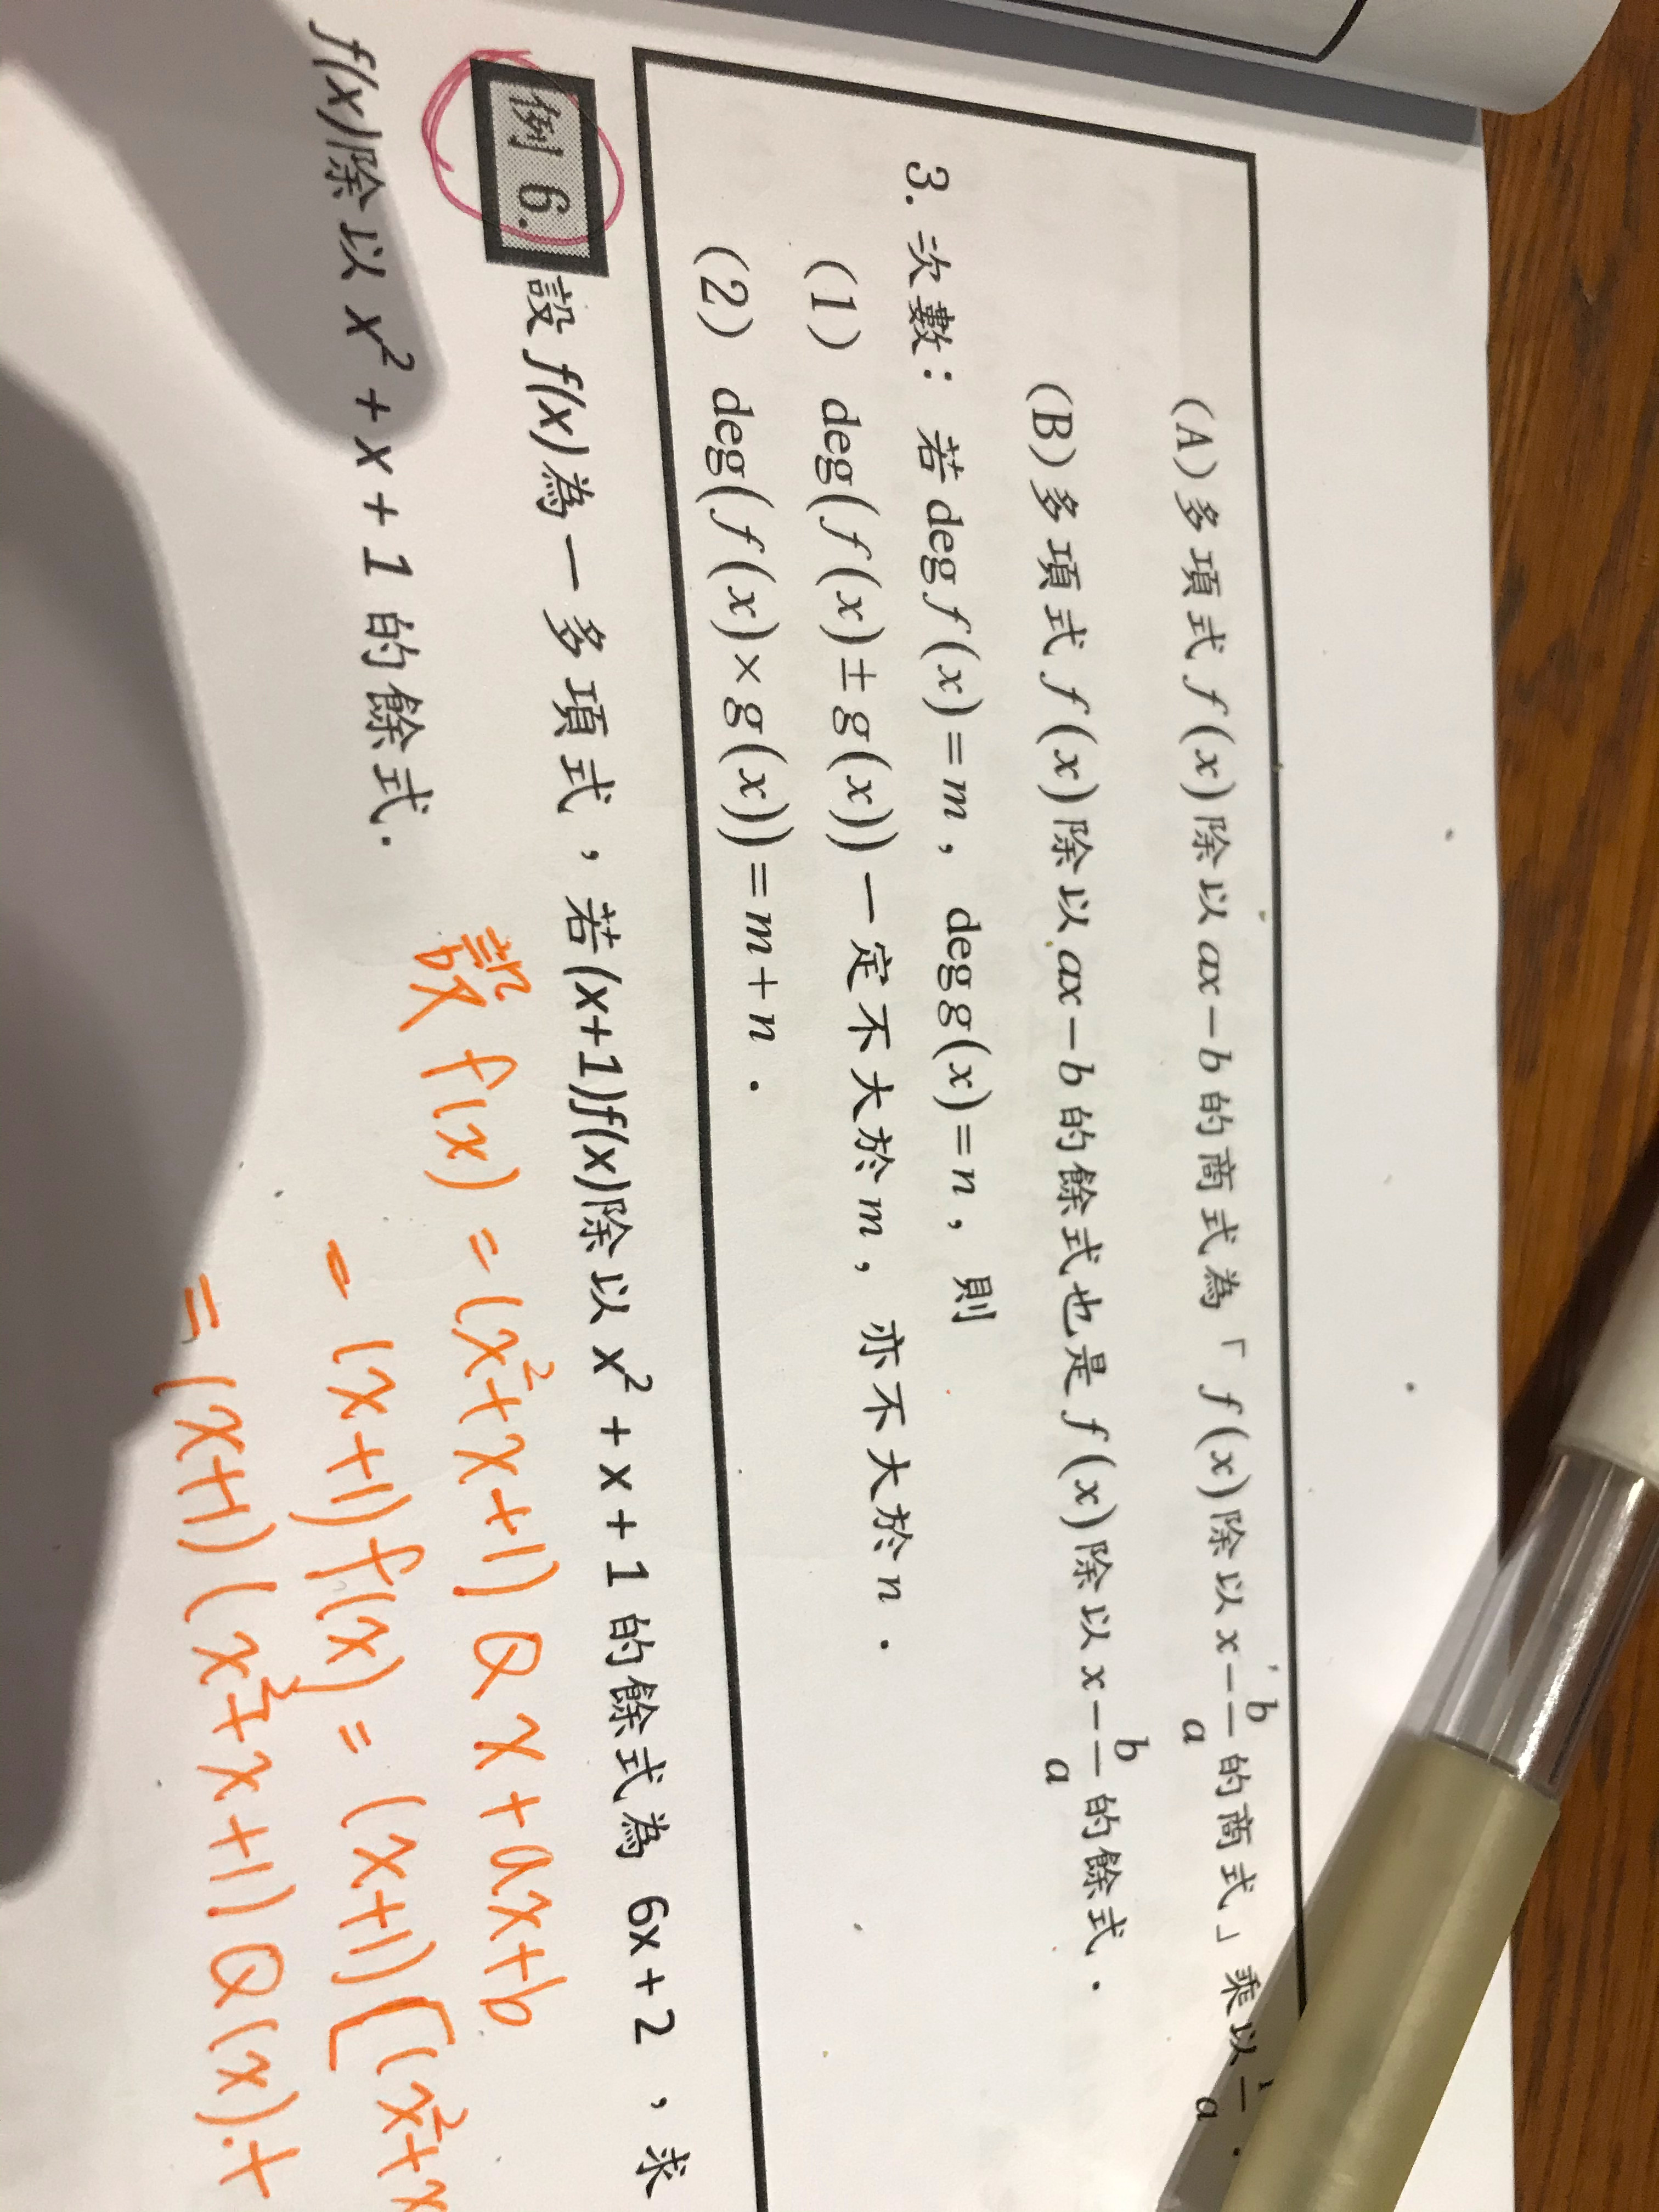 (A)多項式 f(x)除以 ax−b 的商式為「 f(x)除以 x−b/a 的商式」乘以 1/a．
(B)多項式 f(x)除以 ax−b 的餘式也是 f(x)除以 x−b/a 的餘式．
3. 次數：若 deg f(x)=m，deg g(x)=n，則
(1) deg(f(x)±g(x))一定不大於 m，亦不大於 n．
(2) deg(f(x)×g(x))=m+n．
例 6. 設 f(x)為一多項式，若(x+1)f(x)除以 x²+x+1 的餘式為 6x+2 ，求
f(x)除以 x²+x+1 的餘式.
設 f(x) = (x²+x+1) Q x + ax+b
= (x+1) f(x) = (x+1)[(x²+x
= (x+1) (x²+x+1) Q(x)·+